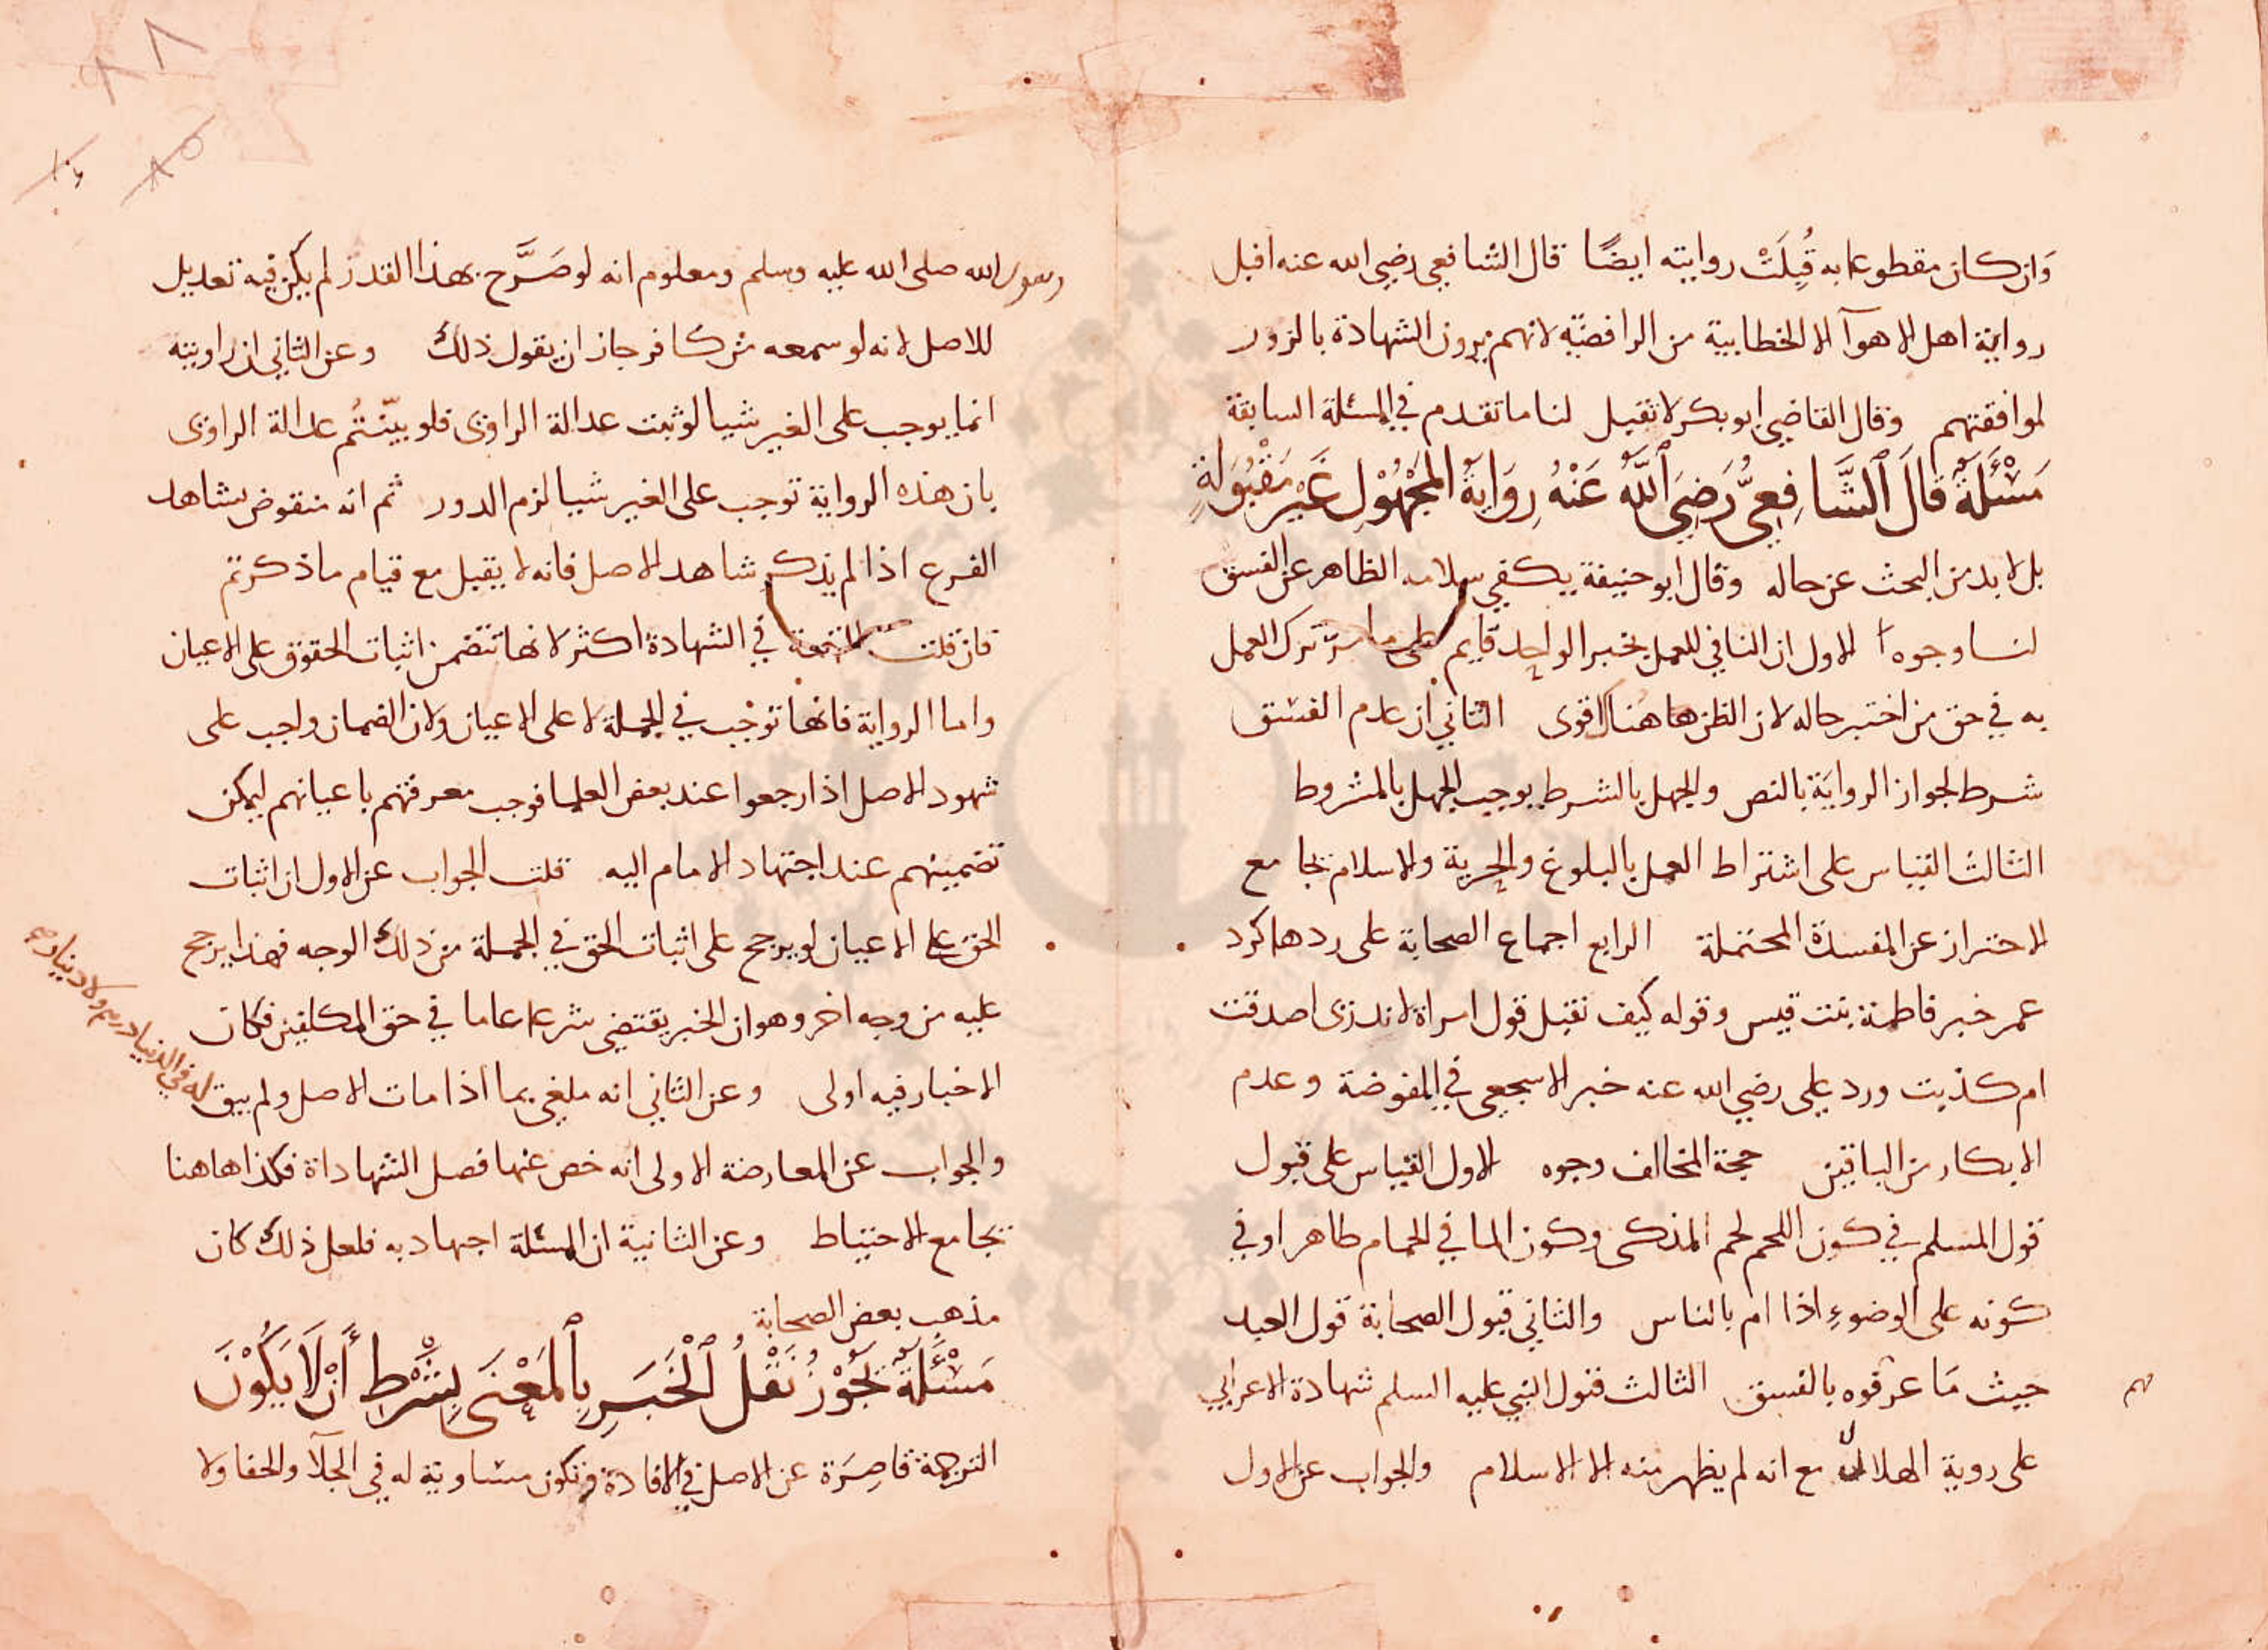 وَان كان مقطوعا به قُبِلَتْ روايته ايضًا قال الشافعي رضي الله عنه اقبل
رواية اهل الاهوآ الا الخطابية من الرافضة لانهم يرون الشهادة بالزور
لموافقتهم وقال القاضي ابو بكر لا تقبل لنا ما تقدم في المسئلة السابقة
مَسْئَلَةٌ قَالَ ٱلشَّافِعِيُّ رَضِيَ ٱللَّهُ عَنْهُ رِوَايَةُ المَجْهُوْلِ غَيْرُ مَقْبُوَلَةٍ
بل لا بد من البحث عن حاله وقال ابو حنيفة يكفي سلامه الظاهر عن الفسق
لنا وجوه الاول ان النافي للعمل بخبر الواحد قايم على ما مرّ ترك العمل
به في حق من اختبر حاله لان الظن هاهنا اقوى الثاني ان عدم الفسق
شرط لجواز الرواية بالنص والجهل بالشرط يوجب الجهل بالمشروط
الثالث القياس على اشتراط العمل بالبلوغ والحرية والاسلام بجامع
الاحتراز عن المفسدة المحتملة الرابع اجماع الصحابة على ردها كرد
عمر خبر فاطمة بنت قيس وقوله كيف نقبل قول امراة لا ندرى اصدقت
ام كذبت ورد على رضي الله عنه خبر الاسجعي في المفوضة وعدم
الانكار من الباقين حجة المخالف وجوه الاول القياس على قبول
قول المسلم في كون اللحم لحم المذكى وكون الما في الحمام طاهرا وفي
كونه على الوضوءِ اذا ام بالناس والثاني قبول الصحابة قول العبد
حيث مَا عرفوه بالفسق الثالث قبول النبي عليه السلم شهادة الاعرابي
على روية الهلال مع انه لم يظهر منه الا الاسلام والجواب عن الاول
رسول الله صلى الله عليه وسلم ومعلوم انه لو صَرَّح بهذا القدر لم يكن فيه تعديل
للاصل لانه لو سمعه من كافر جاز ان يقول ذلك وعن الثاني ان راويته
انما يوجب على الغير شيا لو ثبت عدالة الراوى فلو بيّنتُم عدالة الراوى
بان هذه الرواية توجب على الغير شيا لزم الدور ثم انه منقوض بشاهد
الفرع اذا لم يذكر شاهد الاصل فانه لا يقبل مع قيام ما ذكرتم
فان قلت في الشهادة اكثر لانها تتضمن اثبات الحقوق على الاعيان
واما الرواية فانها توجب في الجملة لا على الاعيان ولان الضمان واجب على
شهود الاصل اذا رجعوا عند بعض العلما فوجب معرفتهم باعيانهم ليمكن
تضمينهم عند اجتهاد الامام اليه قلت الجواب عن الاول ان اثبات
الحق على الاعيان لو يرجح على اثبات الحق في الجملة من ذلك الوجه فهذا يرجح
عليه من وجه اخر وهو ان الخبر يقتضى شرعا عاما في حق المكلفين فكان
الاخبار فيه اولى وعن الثاني انه ملغى بما اذا مات الاصل ولم يبق
له في الدنيا درهم ولا دينار
والجواب عن المعارضة الاولى انه خص عنها فصل الشهاداة فكذا هاهنا
بجامع الاحتياط وعن الثانية ان المسئلة اجتهادية فلعل ذلك كان
مذهب بعض الصحابة
مَسْئَلَةٌ يَجُوْزُ نَقْلُ ٱلْخَبَرِ بِٱلمَعْنَى بِشَرْطِ أَنْ لَا يَكُوْنَ
الترجمة قاصِرَة عن الاصل في الافادة وتكون مساوية له في الجلآ والخفا ولا